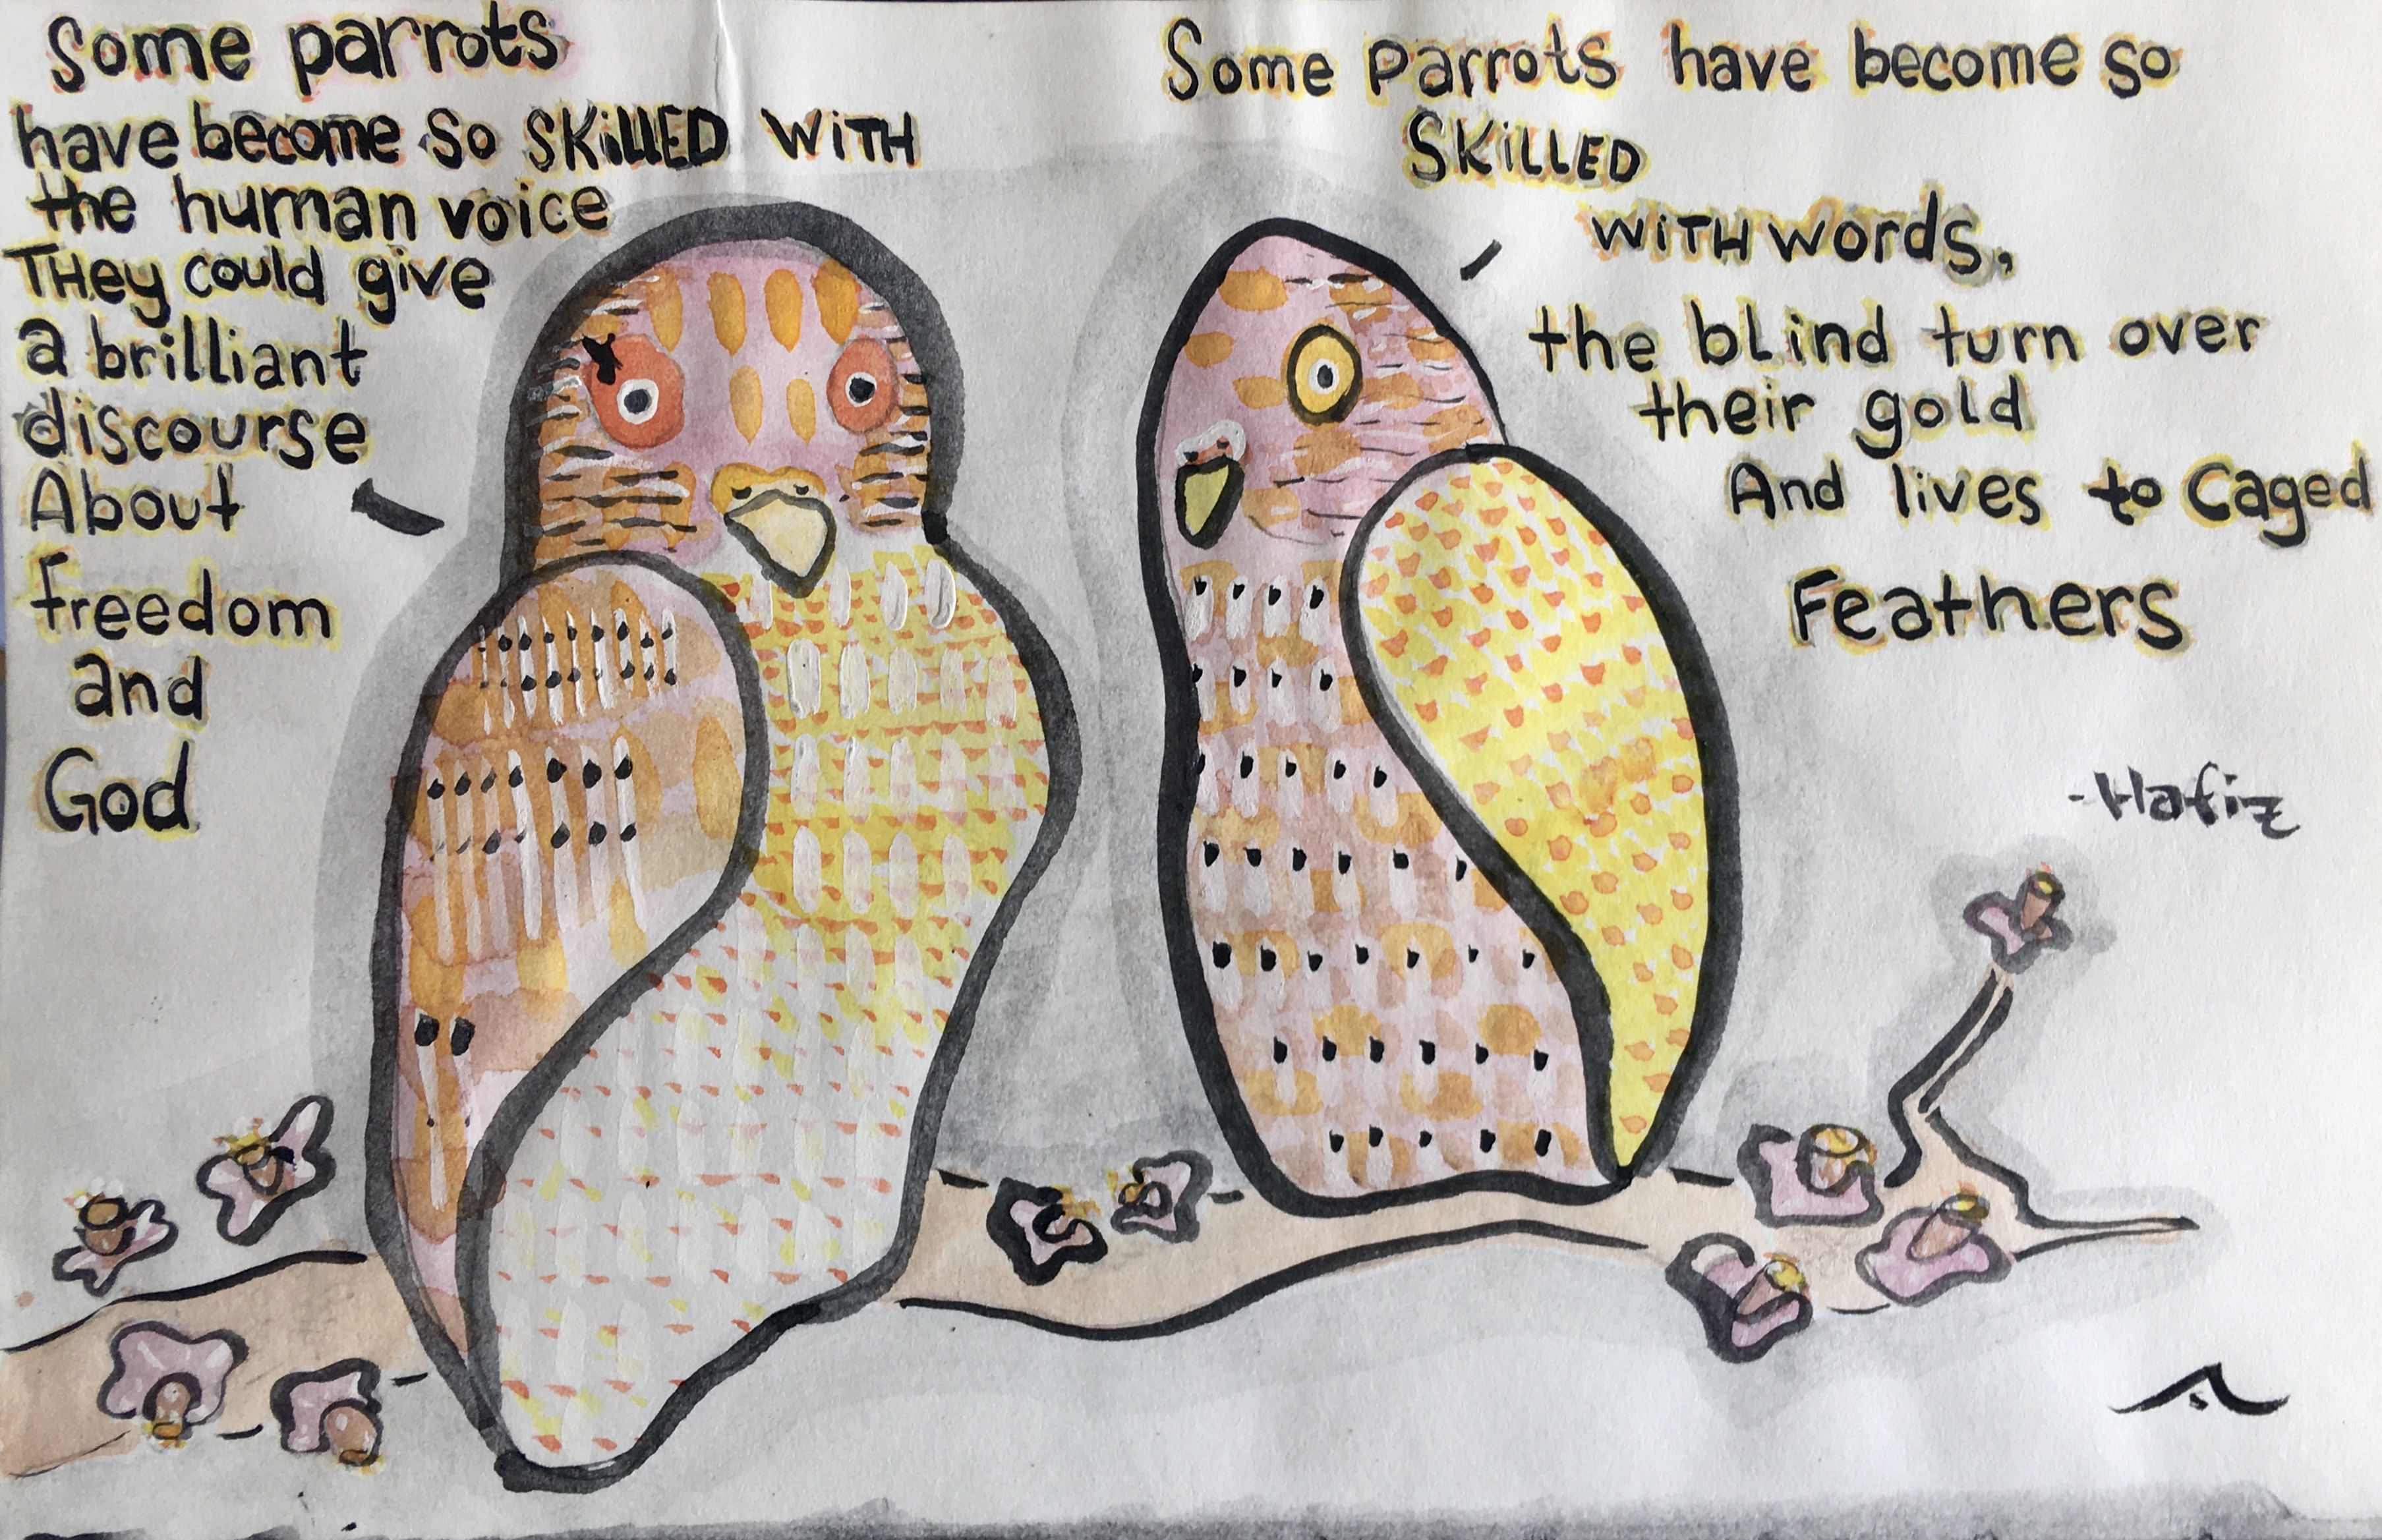 Some parrots
have become so SKiLLED WiTH
the human voice
THey could give
a brilliant
discourse
About
freedom
and
God
Some Parrots have become so
SKiLLED
WiTH words,
the blind turn over
their gold
And lives to Caged
Feathers
-Hafiz